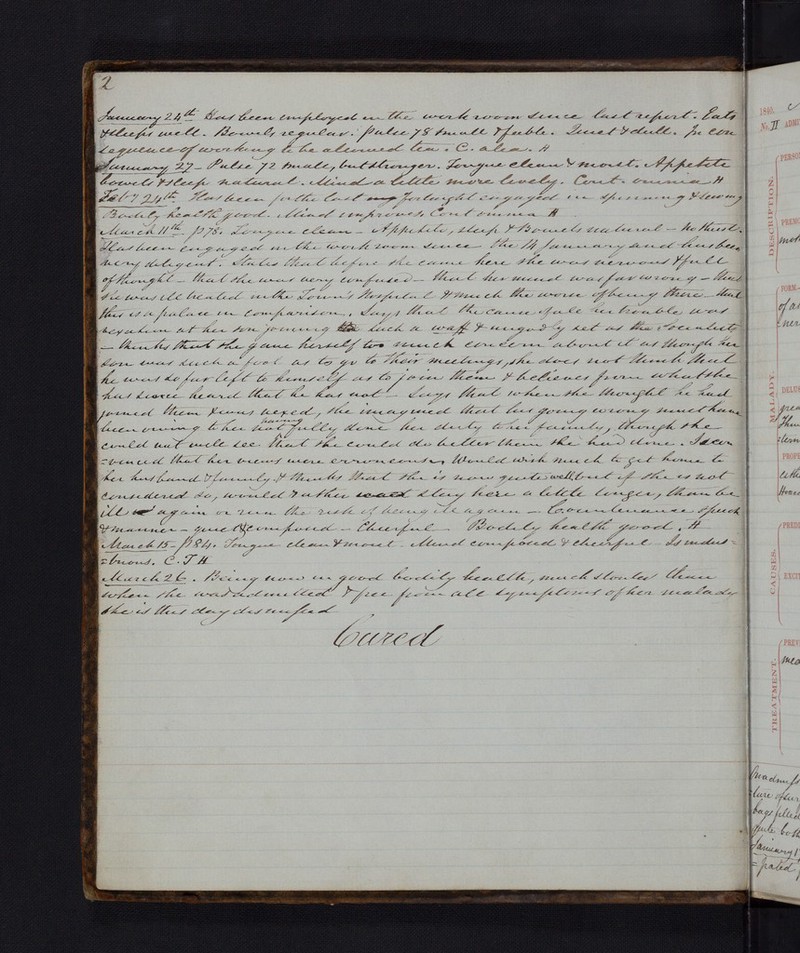 2
January 24th Has been employed in the work room since last report. Eats
& sleeps well. Bowels regular. pulse 78 small & feeble. Quiet & dull. In con
sequence of working to be allowed tea. C. alea. H
January 27 - Pulse 72 small, but stronger. Tongue clean & moist. Appetite
bowels & sleep natural. Mind a little more lively. Cont. omnia H
Feby 24th Has been for the last fortnight engaged in spinning & sewing
Bodily health good. Mind improves. Cont omnia H
March 11th p78. Tongue clean - Appetite, sleep & Bowels natural - No thirst.
Has been engaged in the work room since the 14 January and has been
very diligent. States that before she came here she was nervous & full
of thought - that she was very confused - that her mind was far wrong - that
she was ill treated in the Town's Hospital & much the worse of being there - that
this is a palace in comparison. Says that the cause of all her trouble was
vexation at her son joining such a waff & ungodly set as the Socialists
- thinks that she gave herself too much concern about it as though her
son was such a fool as to go to their meetings, she does not think that
he was so far left to himself as to join them & believes from what she
has since heard that he has not - Says that when she thought he had
joined them & was vexed, she imagined that his going wrong must have
been owing to her not having fully done her duty to her family, though she
could not well see that she could do better than she had done. Is con
=vinced that her views were erroneous, Would wish much to get home to
her husband & family & thinks that she is now quite well, but if she is not
considered so, would rather stay here a little longer, than be
ill again or run the risk of being ill again - Countenance speech
& manner - quiet & composed - Cheerful - Bodily health good. H
March 15 - p84. Tongue clean & moist - Mind composed & cheerful - Is indus=
=trious. C. T H
March 26. Being now in good bodily health, much stouter than
when she was admitted & free from all symptoms of her malady
she is this day dismissed
Cured
1840.
No. II ADMI
DESCRIPTION.
PERSO
PREVIO
MALADY.
FORM.
of a
DELUS
PROPE
CAUSES.
PREDI
EXCIT
TREATMENT.
PREVI
med
On admiss
bags filled
January 1